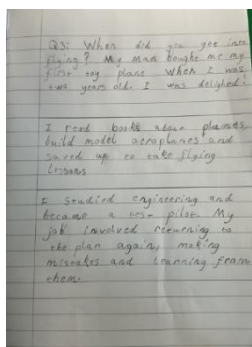 Q3: When did you get into
flying? My Mam bought me my
first toy plane when I was
two years old. I was delighed.
I read books about planes,
build model aeroplanes and
saved up to take flying
lessons
I studied engineering and
became a test pilot. My
job involved reeurning to
the plan again, making
mistakes and learning from
them.